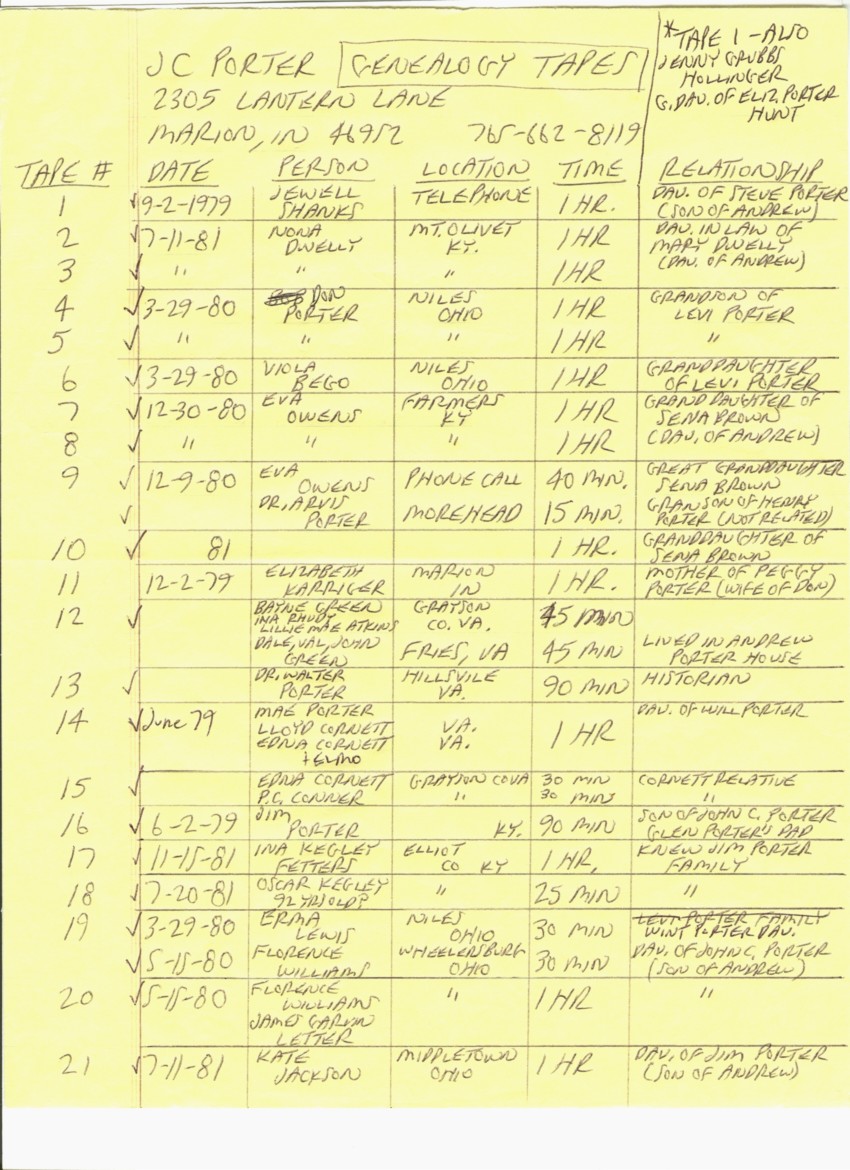 *TAPE 1 - ALSO
JENNY GRUBBS
HOLLINGER
G. DAU. OF ELIZ. PORTER
HUNT
JC PORTER GENEALOGY TAPES
2305 LANTERN LANE
MARION, IN 46952 765-662-8119
TAPE # DATE PERSON LOCATION TIME RELATIONSHIP
1 ✓ 9-2-1979 JEWELL SHANKS TELEPHONE 1 HR. DAU. OF STEVE PORTER (SON OF ANDREW)
2 ✓ 7-11-81 NONA DWELLY MT. OLIVET KY. 1 HR DAU. IN LAW OF MARY DWELLY
3 ✓ " " " 1 HR (DAU. OF ANDREW)
4 ✓ 3-29-80 DON PORTER NILES OHIO 1 HR GRANDSON OF LEVI PORTER
5 ✓ " " " 1 HR "
6 ✓ 3-29-80 VIOLA BEGO NILES OHIO 1 HR GRANDDAUGHTER OF LEVI PORTER
7 ✓ 12-30-80 EVA OWENS FARMERS KY 1 HR GRANDDAUGHTER OF SENA BROWN
8 ✓ " " " 1 HR (DAU. OF ANDREW)
9 ✓ 12-9-80 EVA OWENS PHONE CALL 40 MIN. GREAT GRANDDAUGHTER SENA BROWN
✓ DR. ARVIS PORTER MOREHEAD 15 MIN. GRANSON OF HENRY PORTER (NOT RELATED)
10 ✓ 81 1 HR. GRANDDAUGHTER OF SENA BROWN
11 12-2-79 ELIZABETH KARRIGER MARION IN 1 HR. MOTHER OF PEGGY PORTER (WIFE OF DON)
12 ✓ BAYNE GREEN INA RHUDY LILLIE MAE ATKINS GRAYSON CO. VA. 45 MIN
DALE, VAL, JOHN GREEN FRIES, VA 45 MIN LIVED IN ANDREW PORTER HOUSE
13 ✓ DR. WALTER PORTER HILLSVILE VA. 90 MIN HISTORIAN
14 ✓ June 79 MAE PORTER LLOYD CORNETT EDNA CORNETT + ELMO VA. VA. 1 HR DAU. OF WILL PORTER
15 ✓ EDNA CORNETT GRAYSON CO VA 30 MIN CORNETT RELATIVE
P.C. CONNER " 30 MIN "
16 ✓ 6-2-79 JIM PORTER KY. 90 MIN SON OF JOHN C. PORTER GLEN PORTER'S DAD
17 ✓ 11-15-81 INA KEGLEY FETTERS ELLIOT CO KY 1 HR. KNEW JIM PORTER FAMILY
18 ✓ 7-20-81 OSCAR KEGLEY 92 YRS OLD? " 25 MIN "
19 ✓ 3-29-80 ERMA LEWIS NILES OHIO 30 MIN LEVI PORTER FAMILY WINT PORTER DAU.
✓ 5-15-80 FLORENCE WILLIAMS WHEELERSBURG OHIO 30 MIN DAU. OF JOHN C. PORTER (SON OF ANDREW)
20 ✓ 5-15-80 FLORENCE WILLIAMS JAMES GARVIN LETTER " 1 HR "
21 ✓ 7-11-81 KATE JACKSON MIDDLETOWN OHIO 1 HR DAU. OF JIM PORTER (SON OF ANDREW)